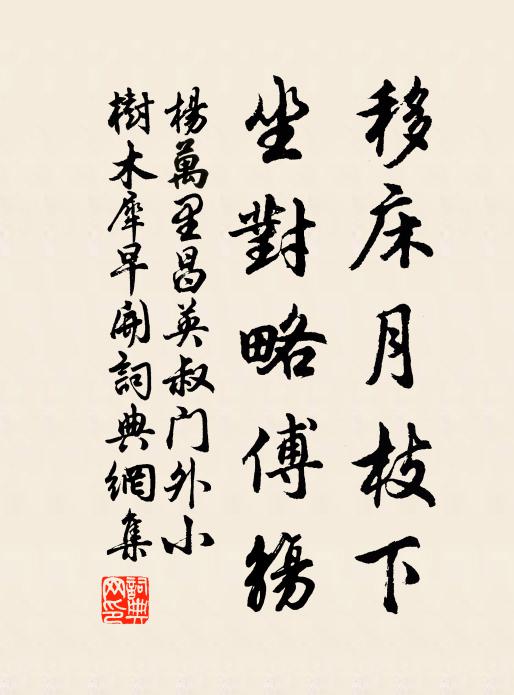 移床月枝下
坐對略傳觴
楊萬里昌英叔门外小
樹木犀早開詞典網集
詞典
网印